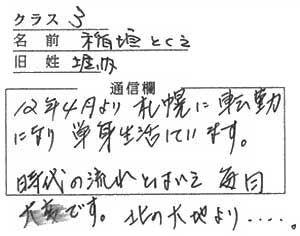 クラス 3
名前 稲垣とくえ
旧姓 堀内
通信欄
12年4月より 札幌に転勤
になり 単身生活しています。
時代の流れとはいえ 毎日
大変です。北の大地より‥‥。